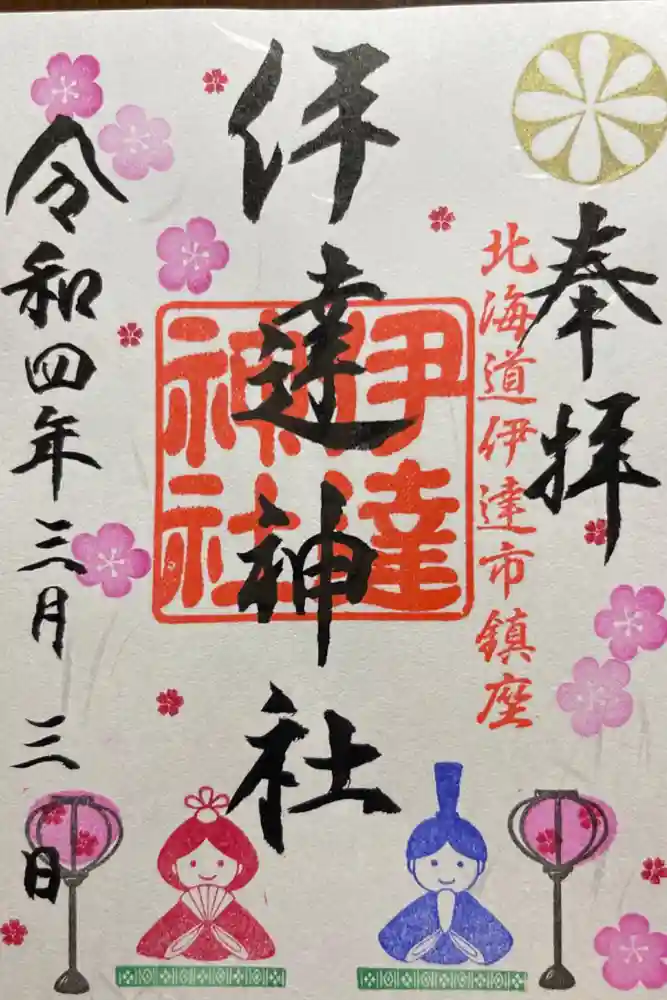 奉拝
北海道伊達市鎮座
伊達神社
伊達
神社
令和四年三月三日